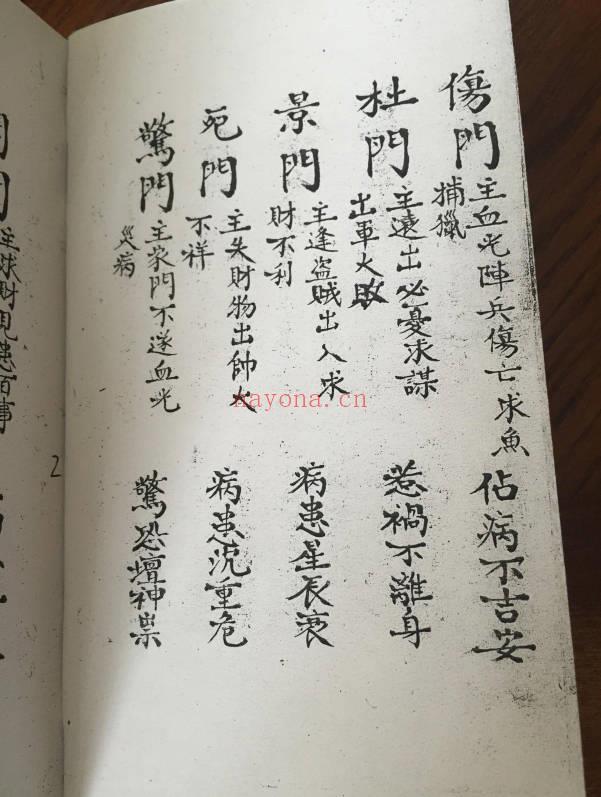 傷門 主血光陣兵傷亡求魚
捕獵
佔病不吉安
杜門 主遠出必憂求謀
出軍大敗
惹禍不離身
景門 主逢盜賊出入求
財不利
病患星辰衰
死門 主失財物出帥大
不祥
病患沉重危
驚門 主家門不遂血光
災病
驚恐壇神祟
2
主求財見患百事
nayona.cn